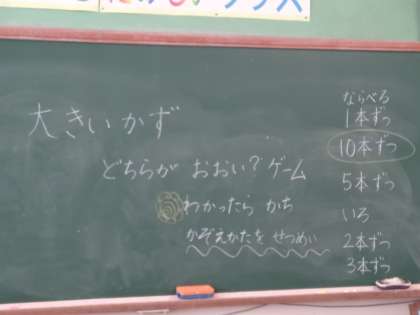 大きいかず
どちらが おおい？ゲーム
わかったら かち
かぞえかたを せつめい
ならべる
1本ずつ
10本ずつ
5本ずつ
いろ
2本ずつ
3本ずつ